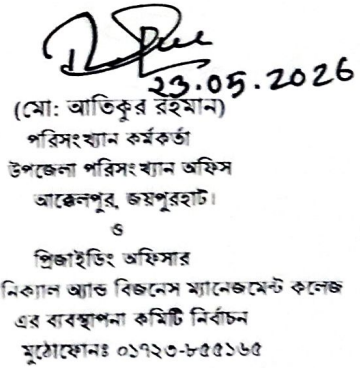 23.05.2026
(মো: আতিকুর রহমান)
পরিসংখ্যান কর্মকর্তা
উপজেলা পরিসংখ্যান অফিস
আক্কেলপুর, জয়পুরহাট।
ও
প্রিজাইডিং অফিসার
নিক্যাল অ্যান্ড বিজনেস ম্যানেজমেন্ট কলেজ
এর ব্যবস্থাপনা কমিটি নির্বাচন
মুঠোফোনঃ ০১৭২৩-৮৫৫১৬৫